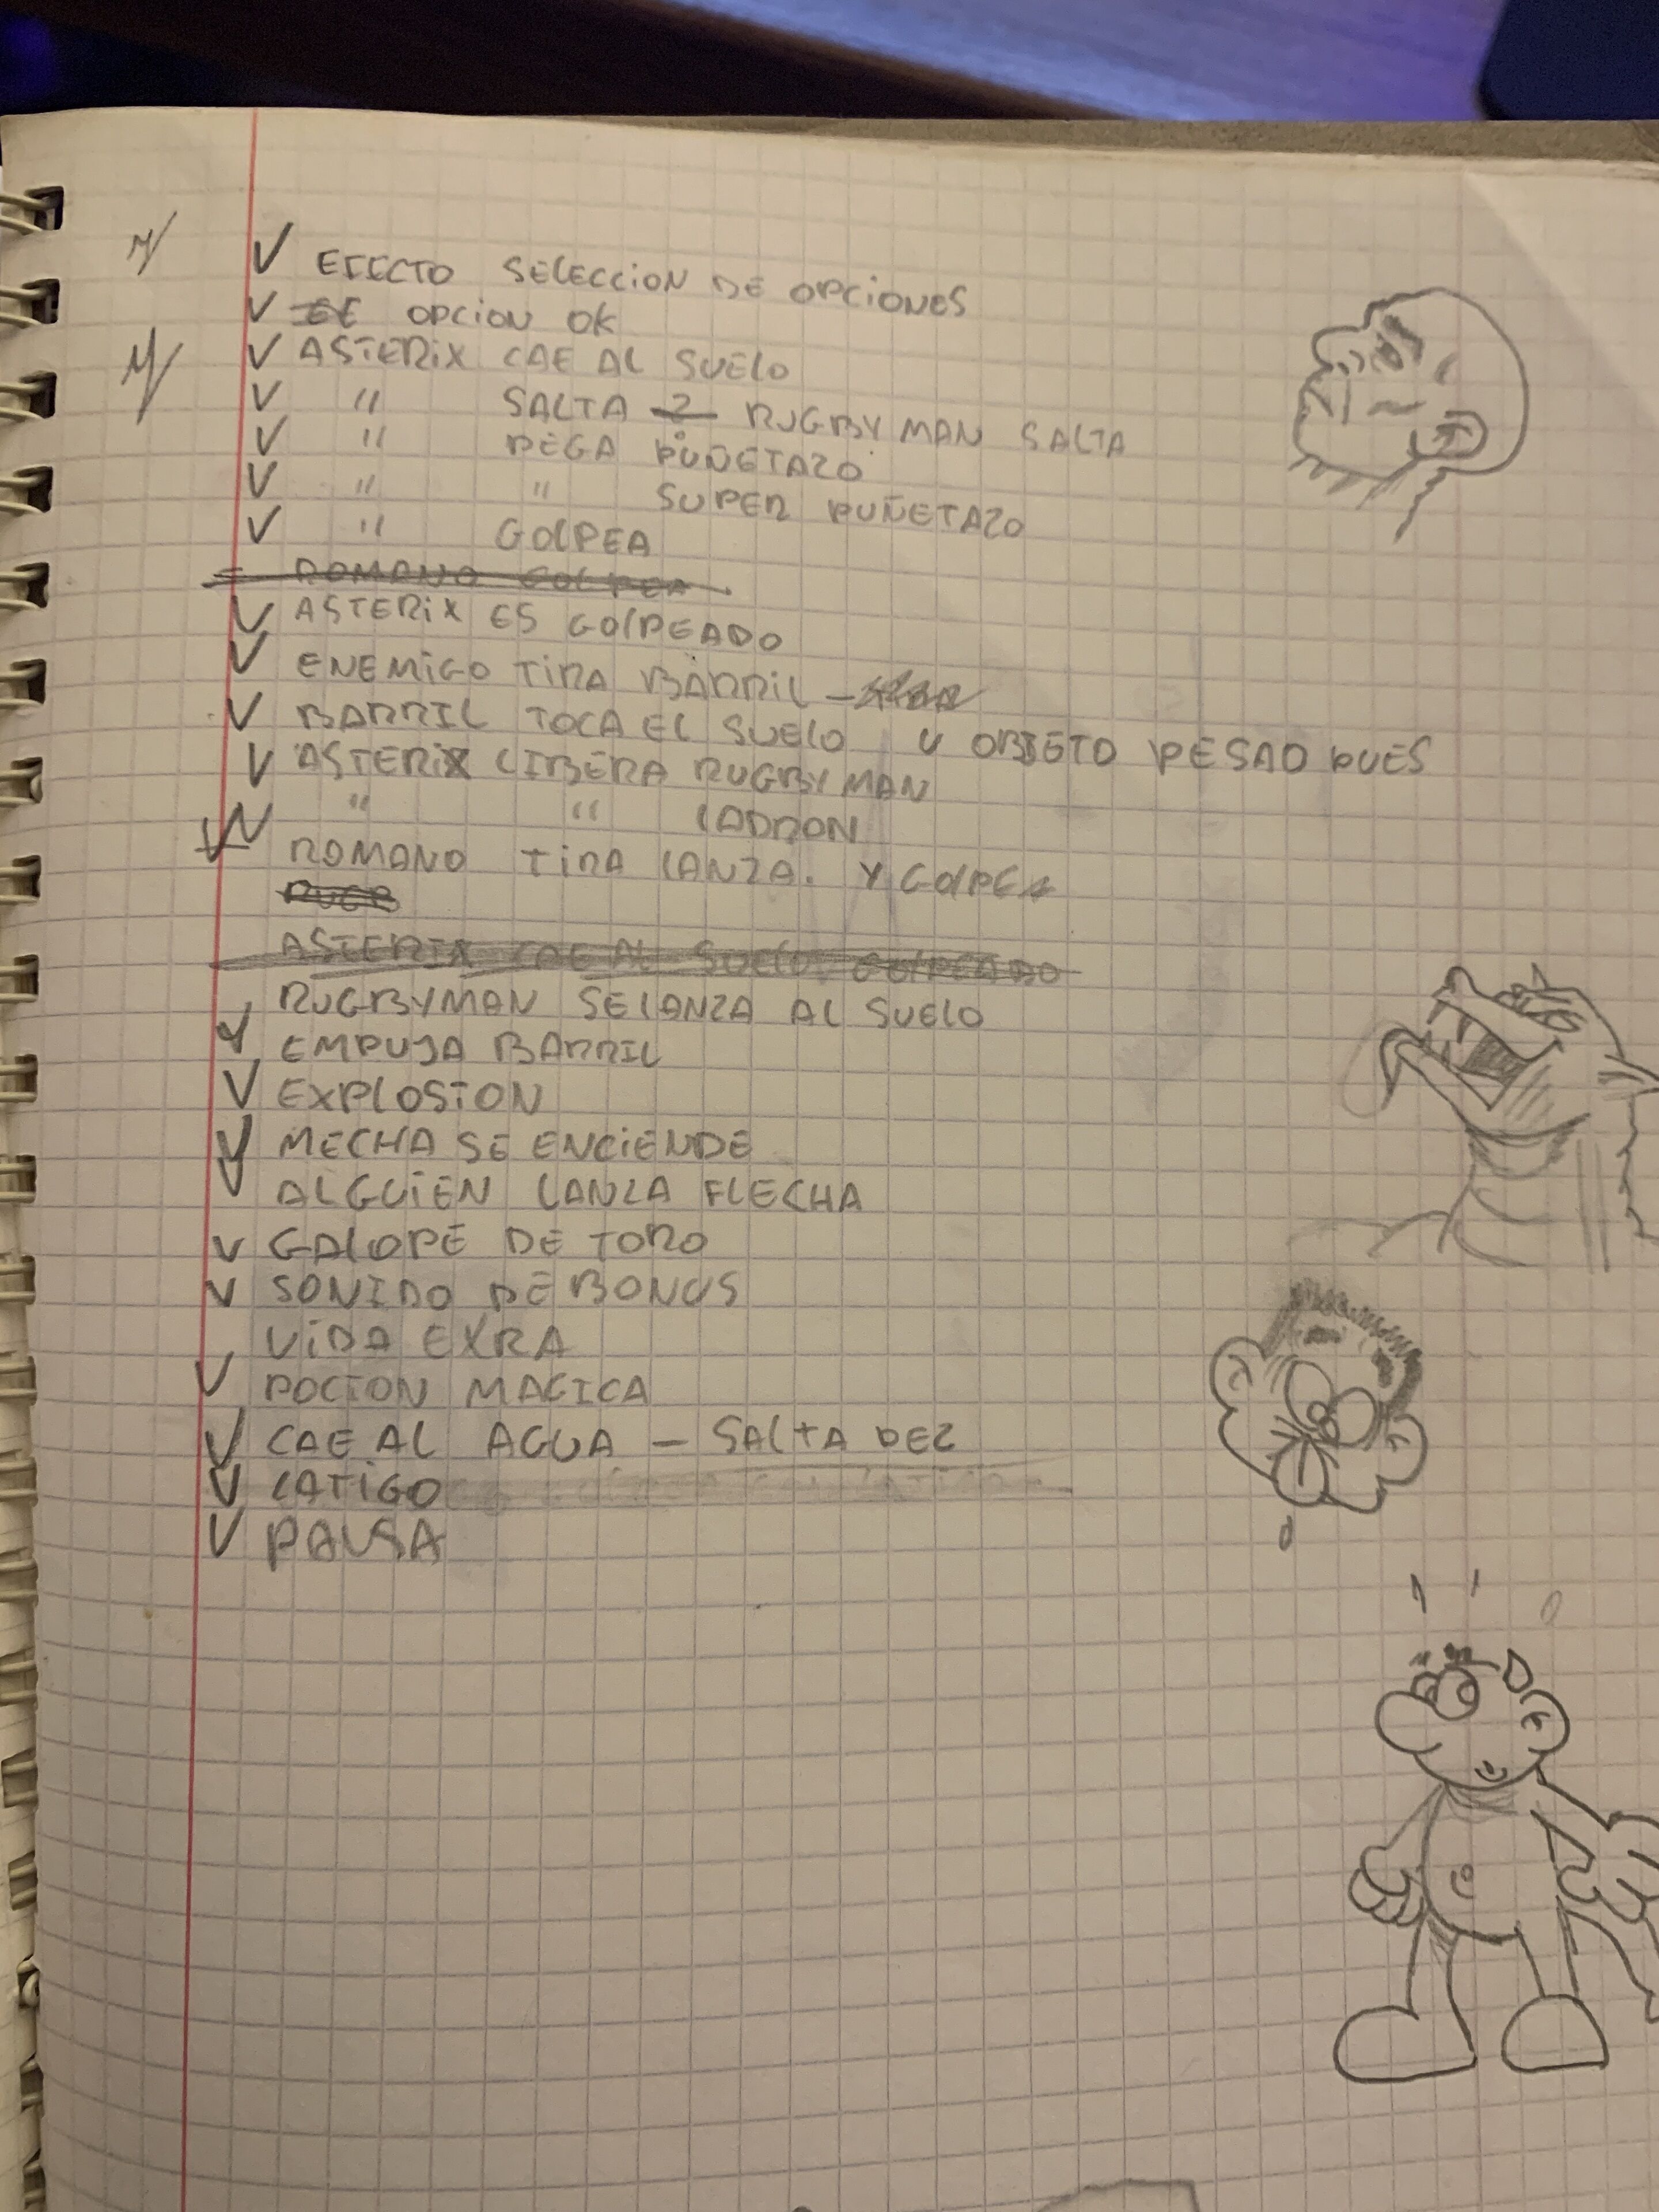 ✓ EFECTO SELECCION DE OPCIONES
✓ OPCION OK
✓ ASTERIX CAE AL SUELO
✓ " SALTA RUGBYMAN SALTA
✓ " PEGA PUÑETAZO
✓ " " SUPER PUÑETAZO
✓ " GOLPEA
ROMANO GOLPEA
✓ ASTERIX ES GOLPEADO
✓ ENEMIGO TIRA BARRIL –
✓ BARRIL TOCA EL SUELO U OBJETO PESAO PUES
✓ ASTERIX LIBERA RUGBYMAN
" " LADRON
✓ ROMANO TIRA LANZA. Y GOLPEA
RUGB
ASTERIX CAE AL SUELO GOLPEADO
RUGBYMAN SE LANZA AL SUELO
✓ EMPUJA BARRIL
✓ EXPLOSION
✓ MECHA SE ENCIENDE
✓ ALGUIEN LANZA FLECHA
✓ GALOPE DE TORO
✓ SONIDO DE BONUS
VIDA EXRA
✓ POCION MAGICA
✓ CAE AL AGUA – SALTA PEZ
✓ LATIGO
✓ PAUSA